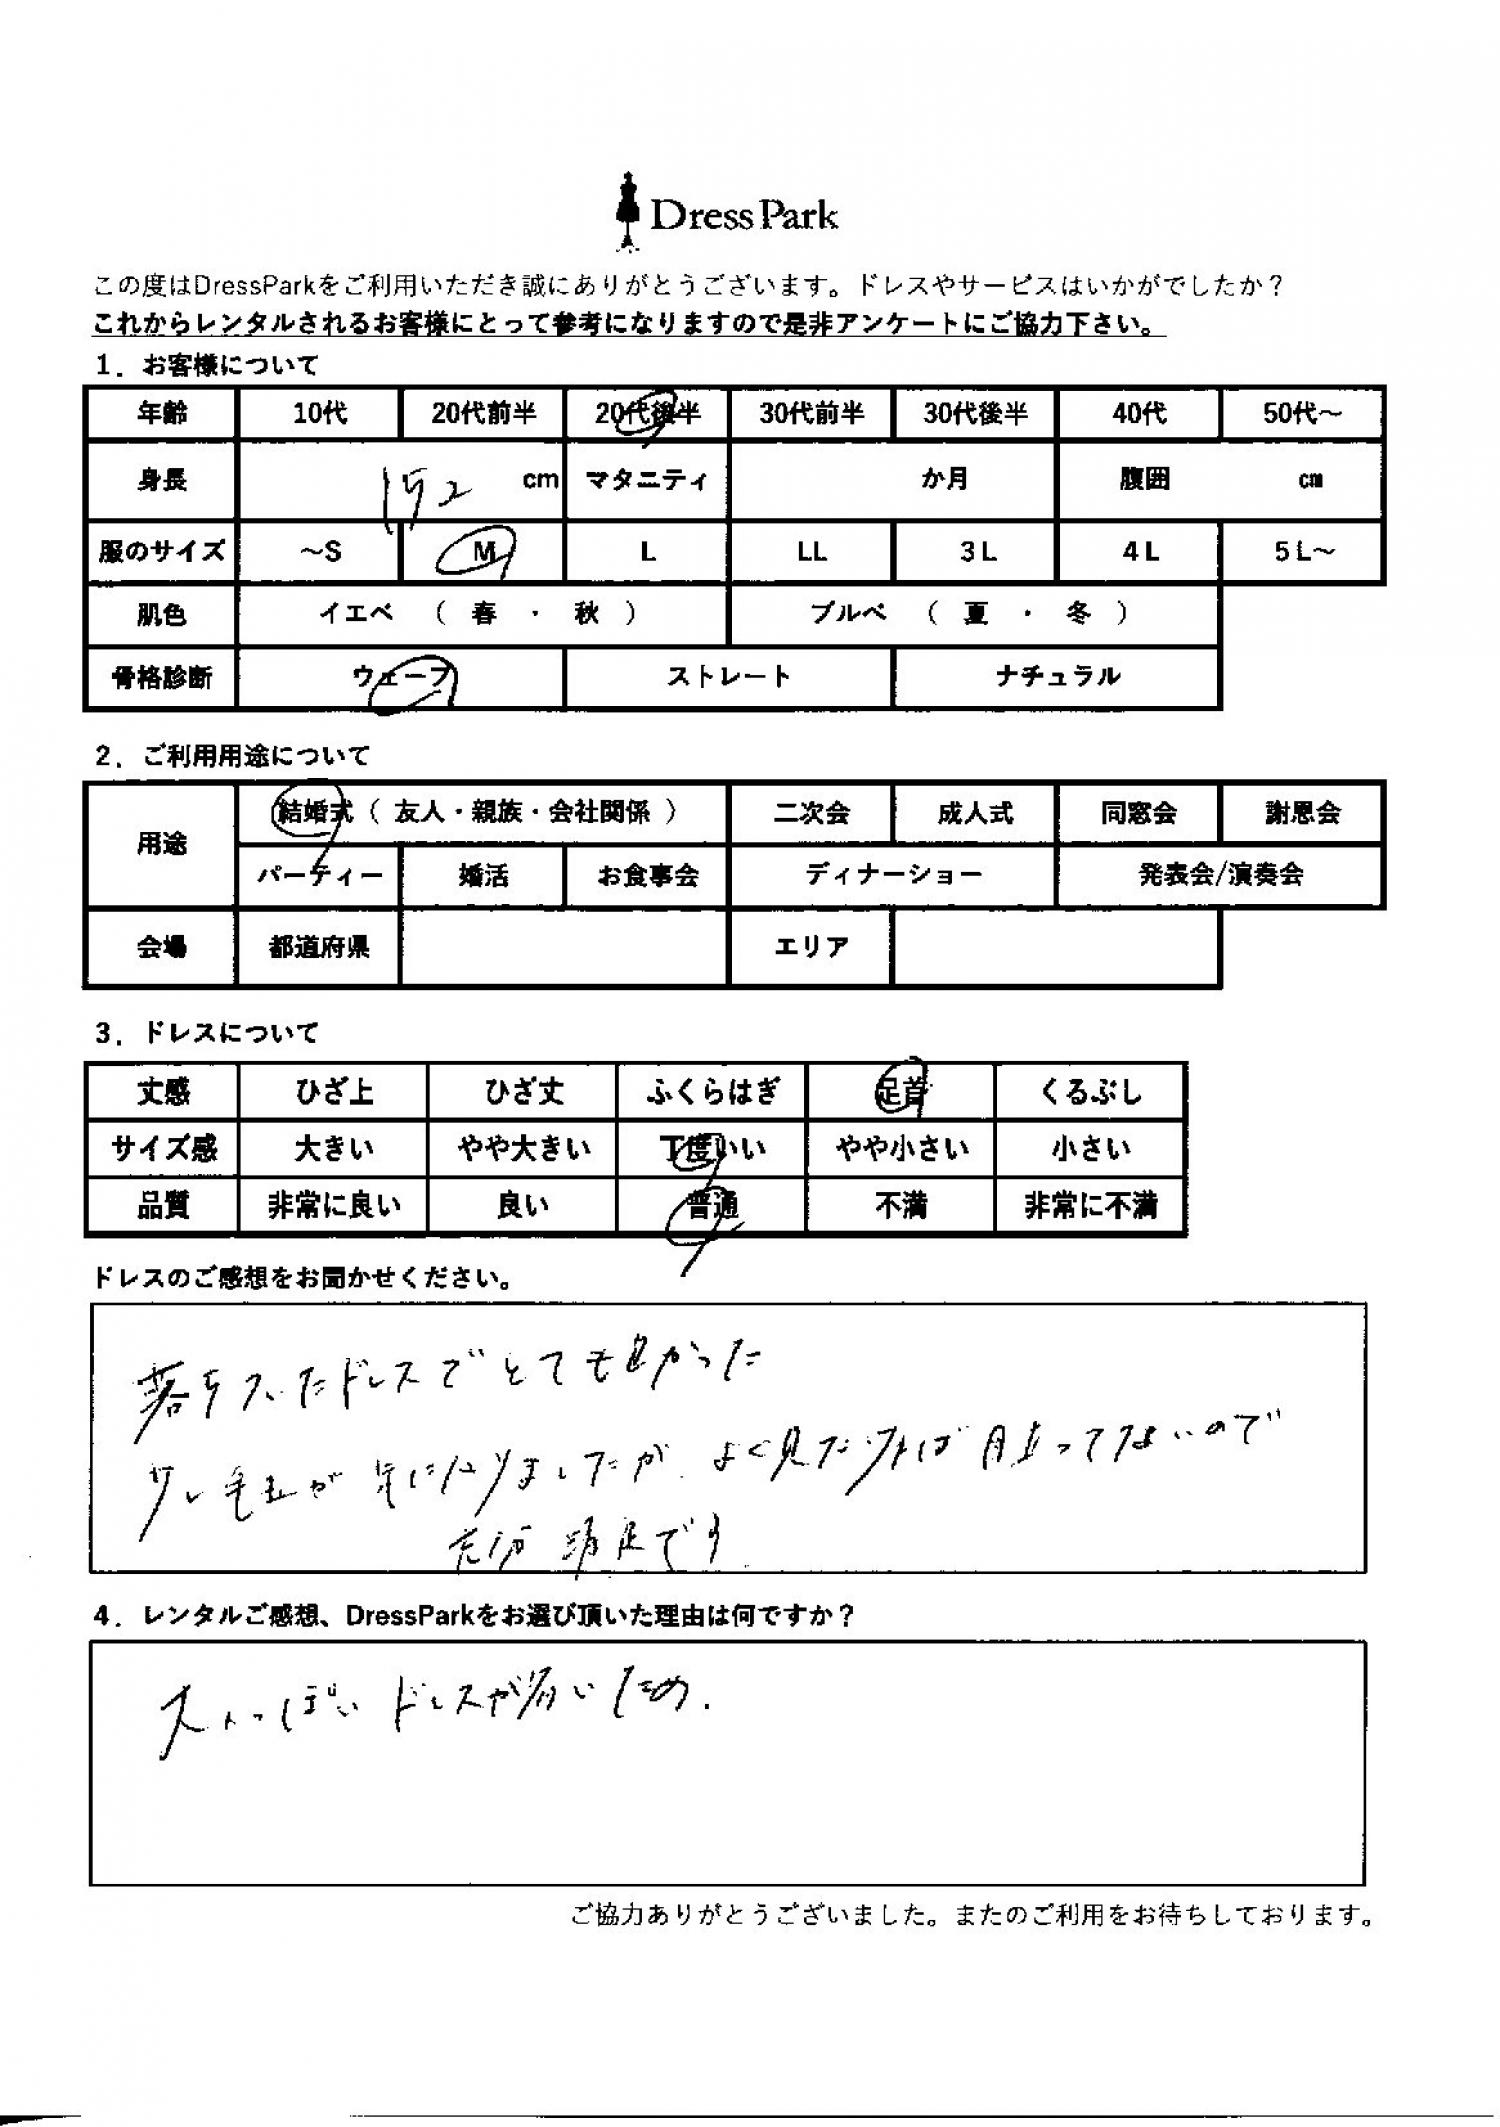 DressPark
この度はDressParkをご利用いただき誠にありがとうございます。ドレスやサービスはいかがでしたか？
これからレンタルされるお客様にとって参考になりますので是非アンケートにご協力下さい。
1．お客様について
年齢 10代 20代前半 20代後半 30代前半 30代後半 40代 50代～
身長 152 cm マタニティ か月 腹囲 cm
服のサイズ ～S M L LL 3L 4L 5L～
肌色 イエベ （ 春 ・ 秋 ） ブルベ （ 夏 ・ 冬 ）
骨格診断 ウェーブ ストレート ナチュラル
2．ご利用用途について
用途 結婚式（ 友人・親族・会社関係 ） 二次会 成人式 同窓会 謝恩会
パーティー 婚活 お食事会 ディナーショー 発表会/演奏会
会場 都道府県 エリア
3．ドレスについて
丈感 ひざ上 ひざ丈 ふくらはぎ 足首 くるぶし
サイズ感 大きい やや大きい 丁度いい やや小さい 小さい
品質 非常に良い 良い 普通 不満 非常に不満
ドレスのご感想をお聞かせください。
落ち着いたドレスでとても良かった
少し毛玉が気になりましたが、よく見なければ目立ってないので
充分満足です
4．レンタルご感想、DressParkをお選び頂いた理由は何ですか？
大人っぽいドレスが多いため.
ご協力ありがとうございました。またのご利用をお待ちしております。